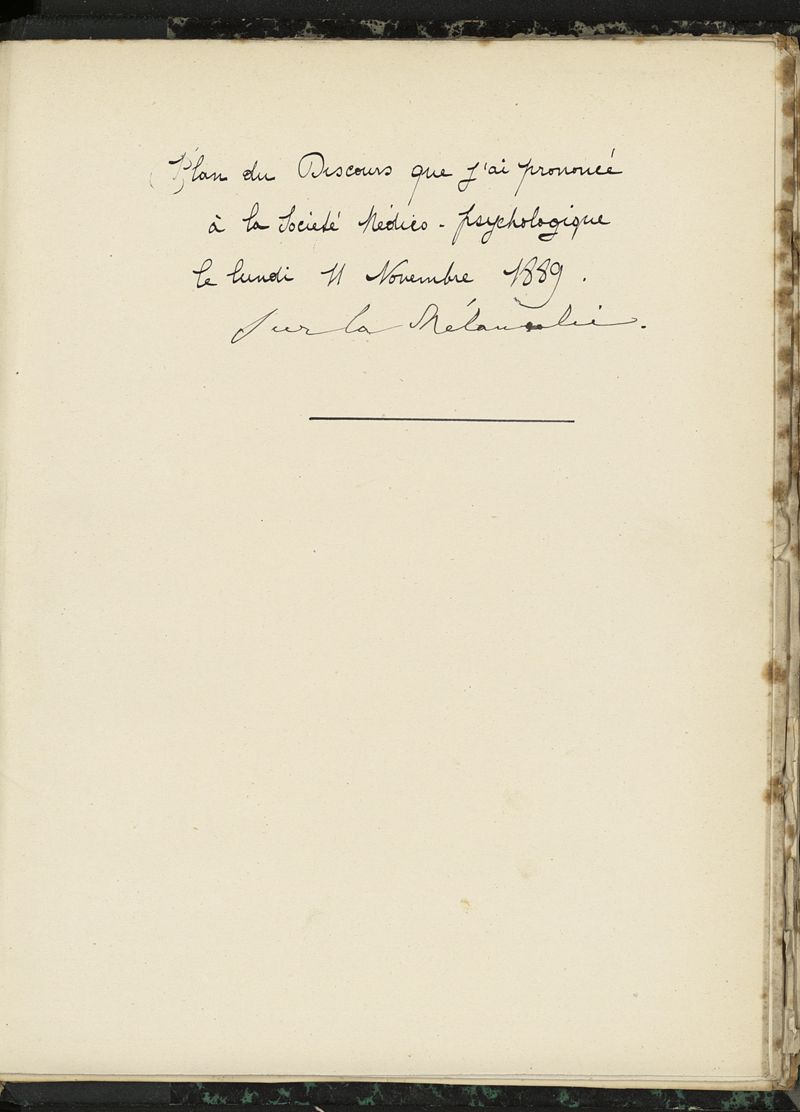 Plan du Discours que j'ai prononcé
à la Societé Médico-psychologique
le lundi 11 Novembre 1889.
Sur la Mélancolie.